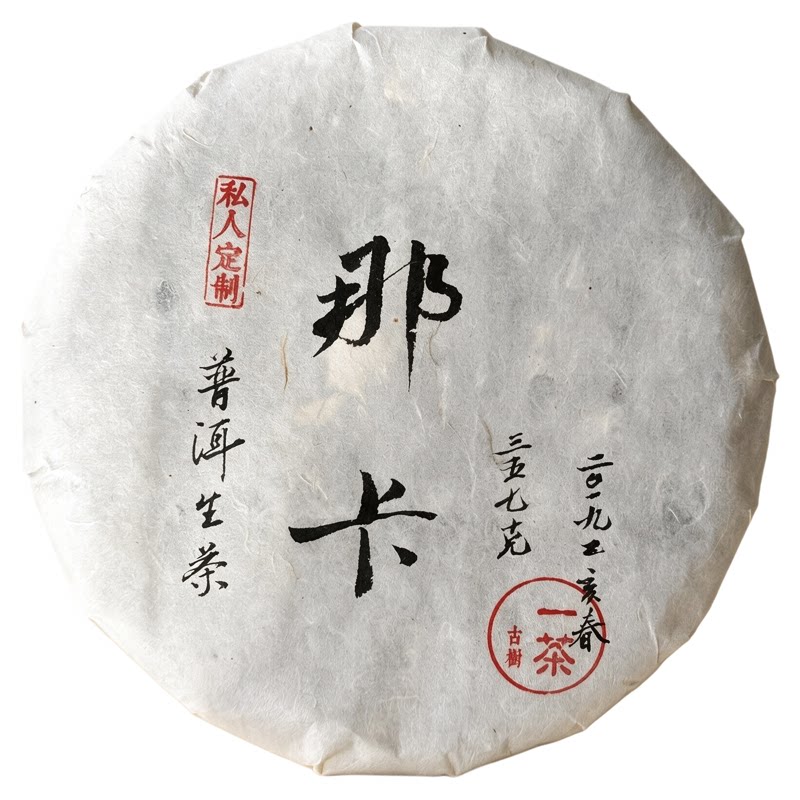 私人定制
普洱生茶
那卡
三五七克
二〇一九乙亥春
一茶
古樹